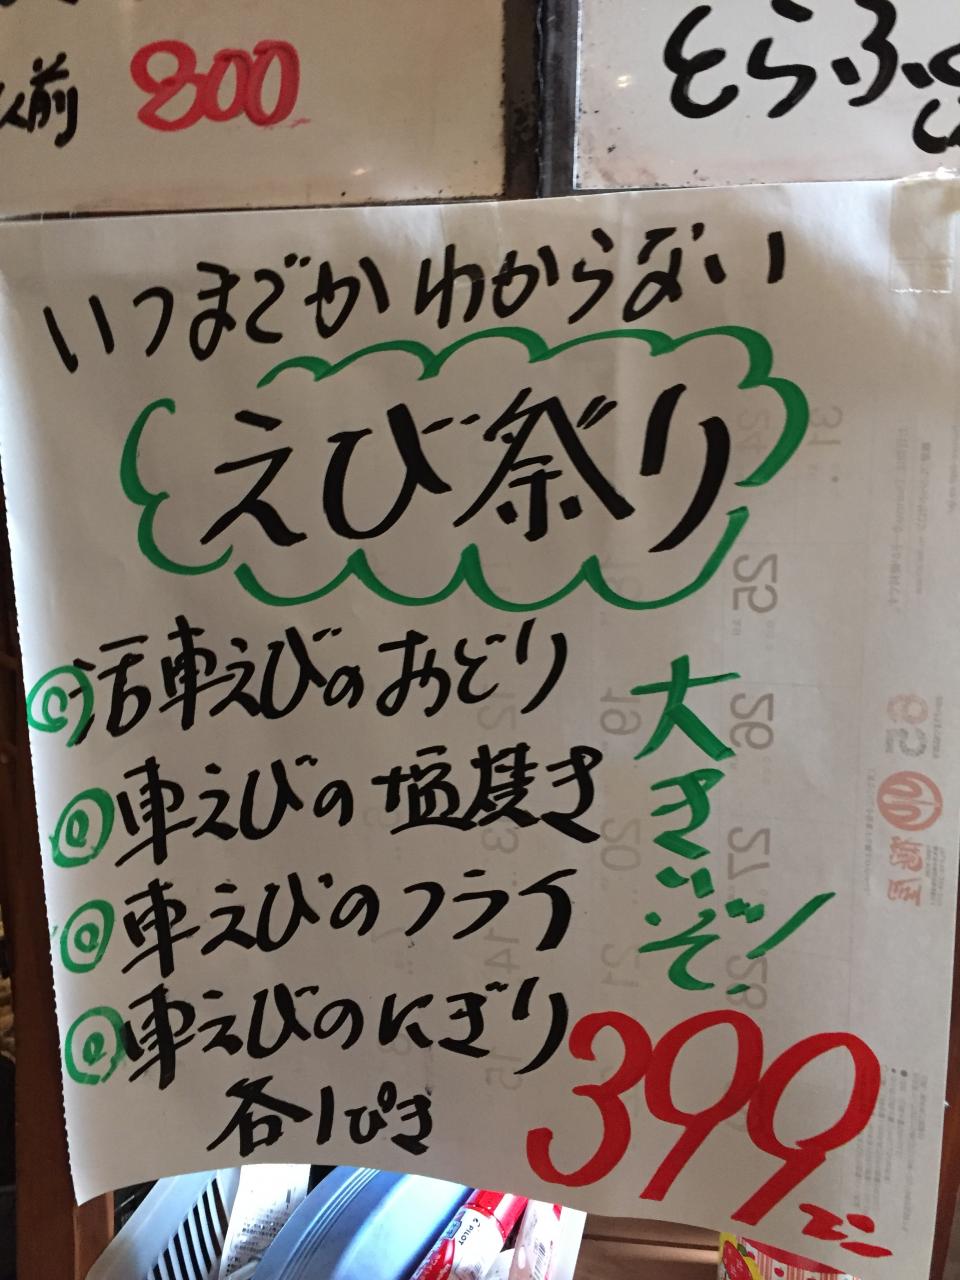 人前 800
とらふぐ
いつまでか わからない
えび祭り
活車えびのおどり
車えびの塩焼き
車えびのフライ
車えびのにぎり
各1ぴき
大きいぞ!
399
PILOT
25
26
27
28
19
20
21
14
15
65